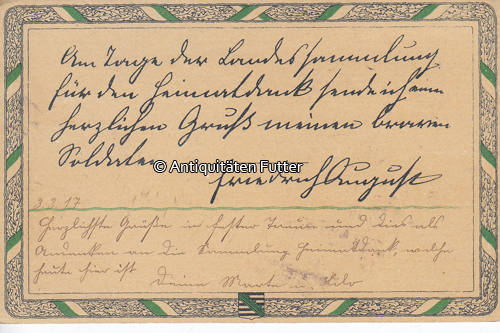 Am Tage der Landessammlung
für den Heimatdank sende ich einen
herzlichen Gruß meinen braven
Soldaten
© Antiquitäten Futter
Friedrich August
3.3.17
Herzlichste Grüße in fester Treue und dies als
Andenken an die Sammlung Heimatdank, welche
heute hier ist
Deine Marta